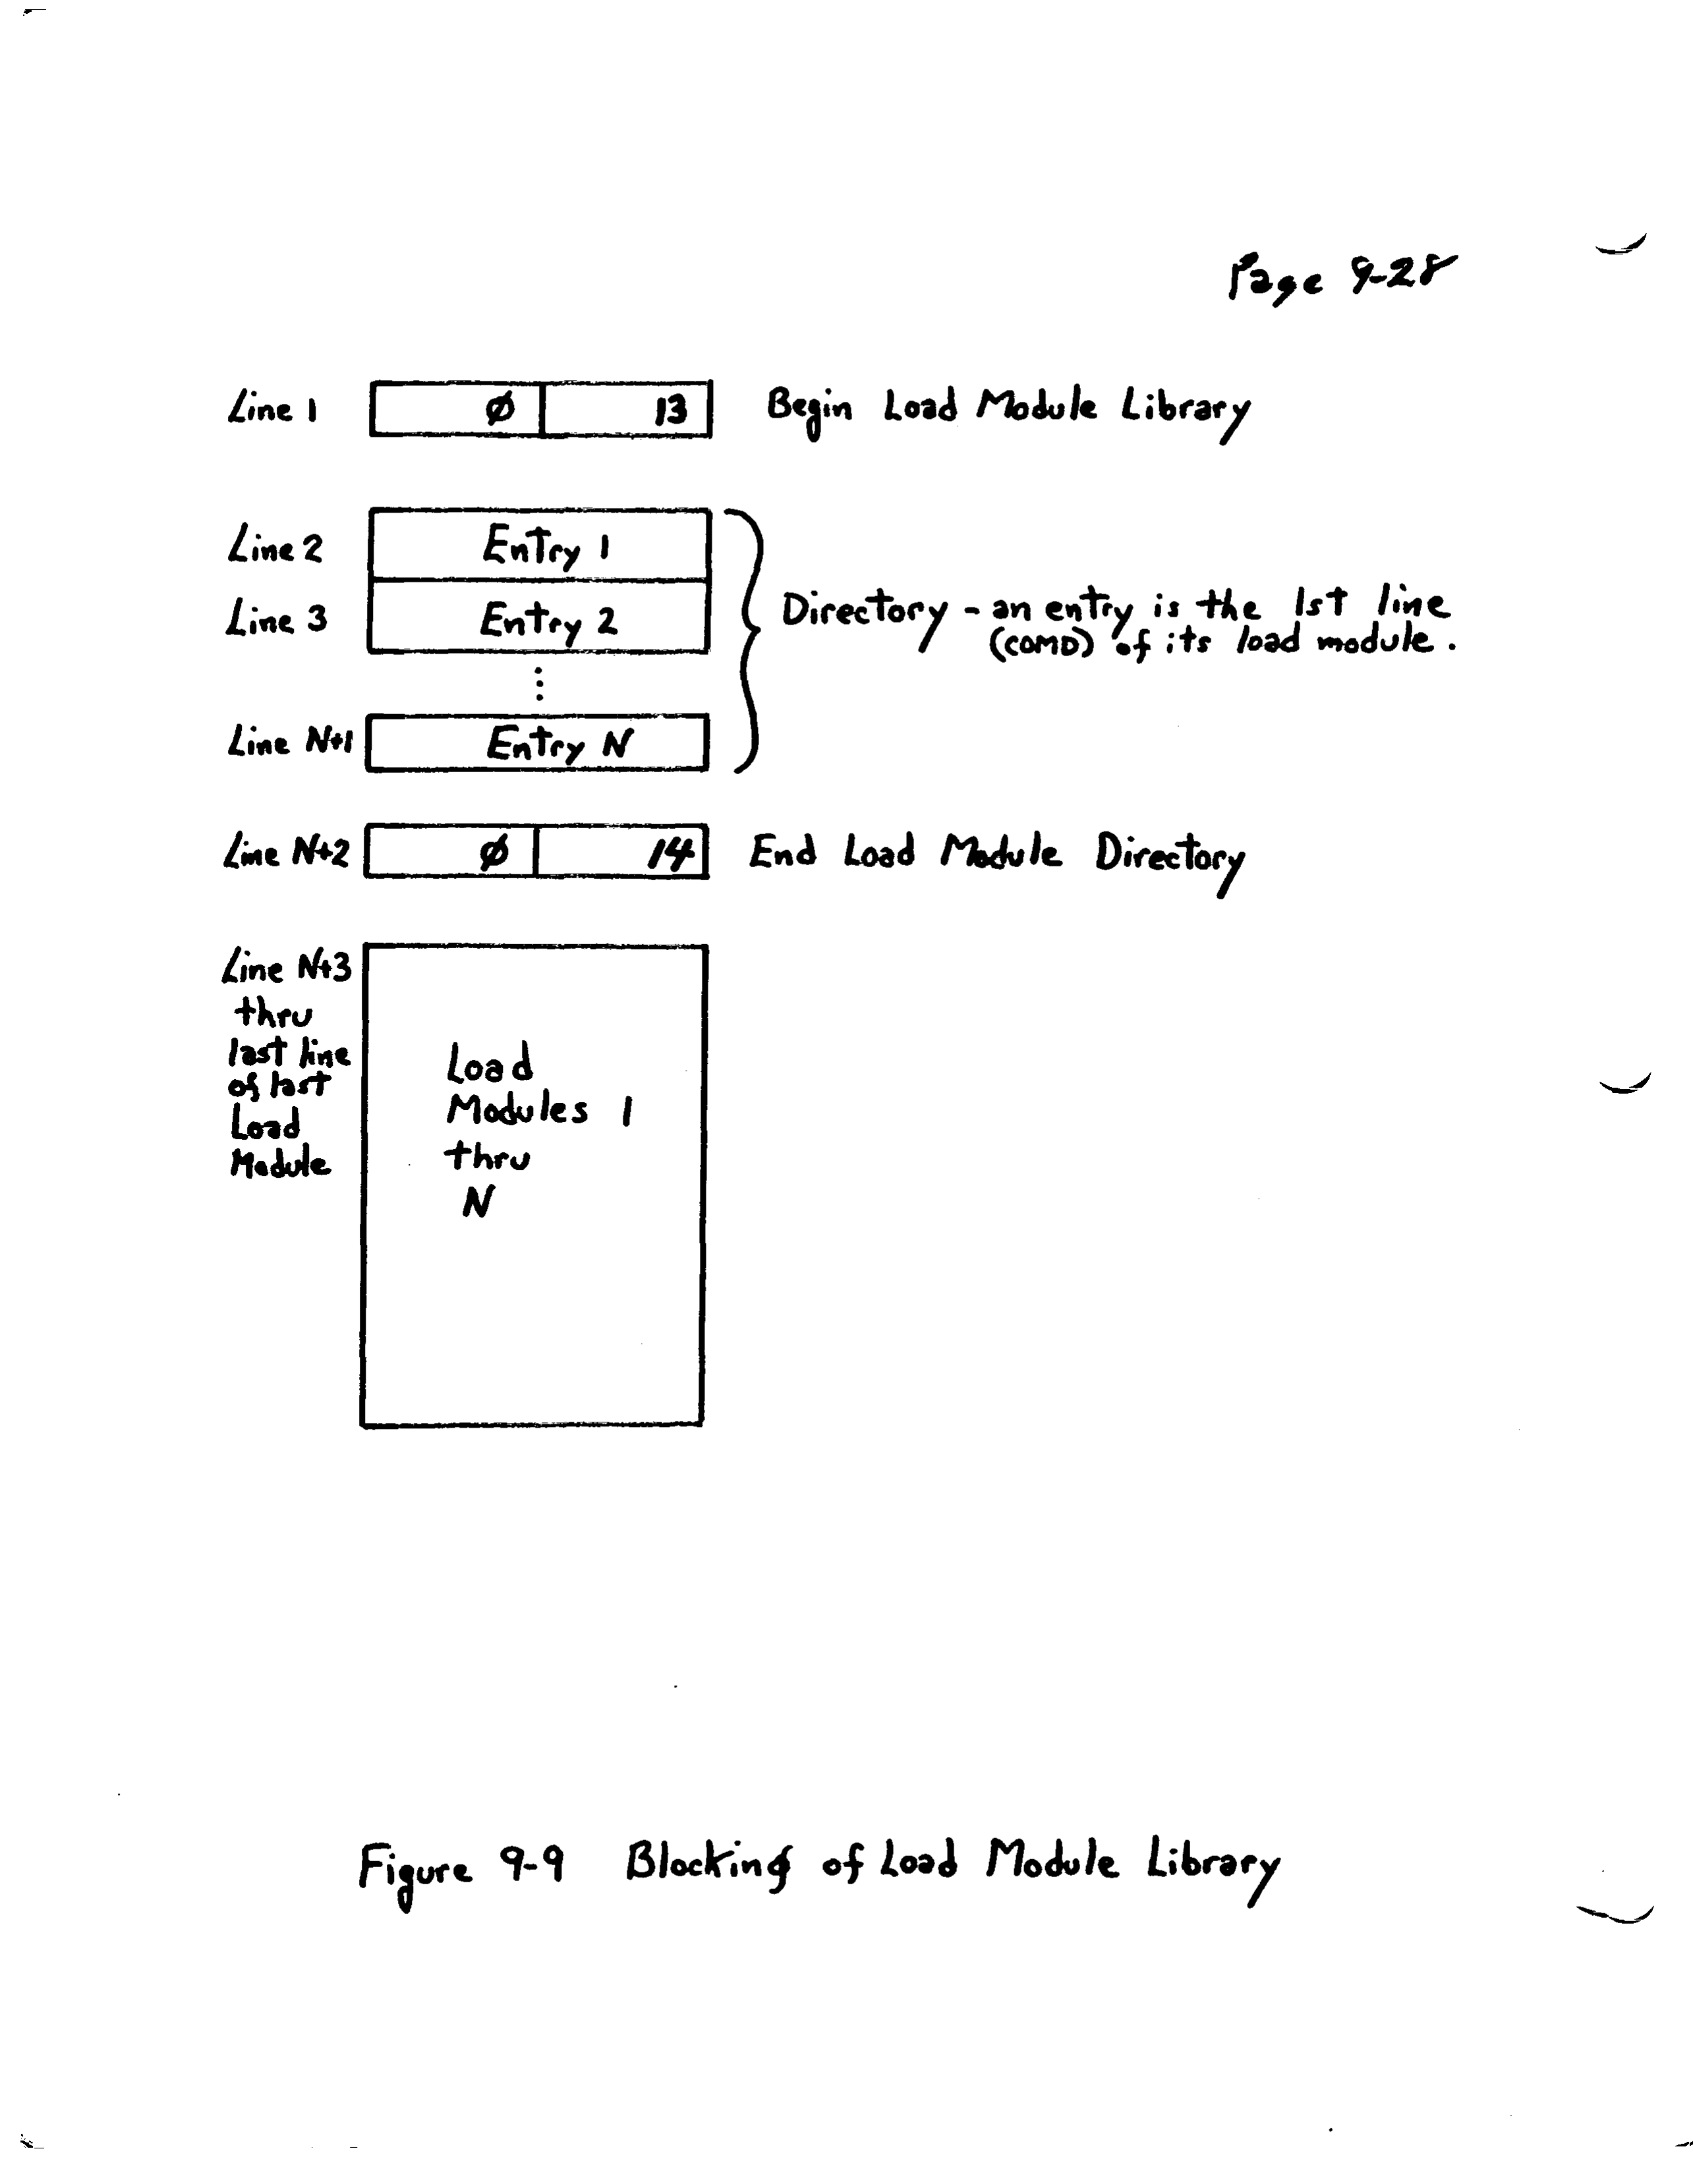 Page 9-28
Line 1 Ø 13 Begin Load Module Library
Line 2 Entry 1
Line 3 Entry 2
Directory - an entry is the 1st line
(COMD) of its load module.
⋮
Line N+1 Entry N
Line N+2 Ø 14 End Load Module Directory
Line N+3
thru
last line
of last
Load
Module
Load
Modules 1
thru
N
Figure 9-9 Blocking of Load Module Library